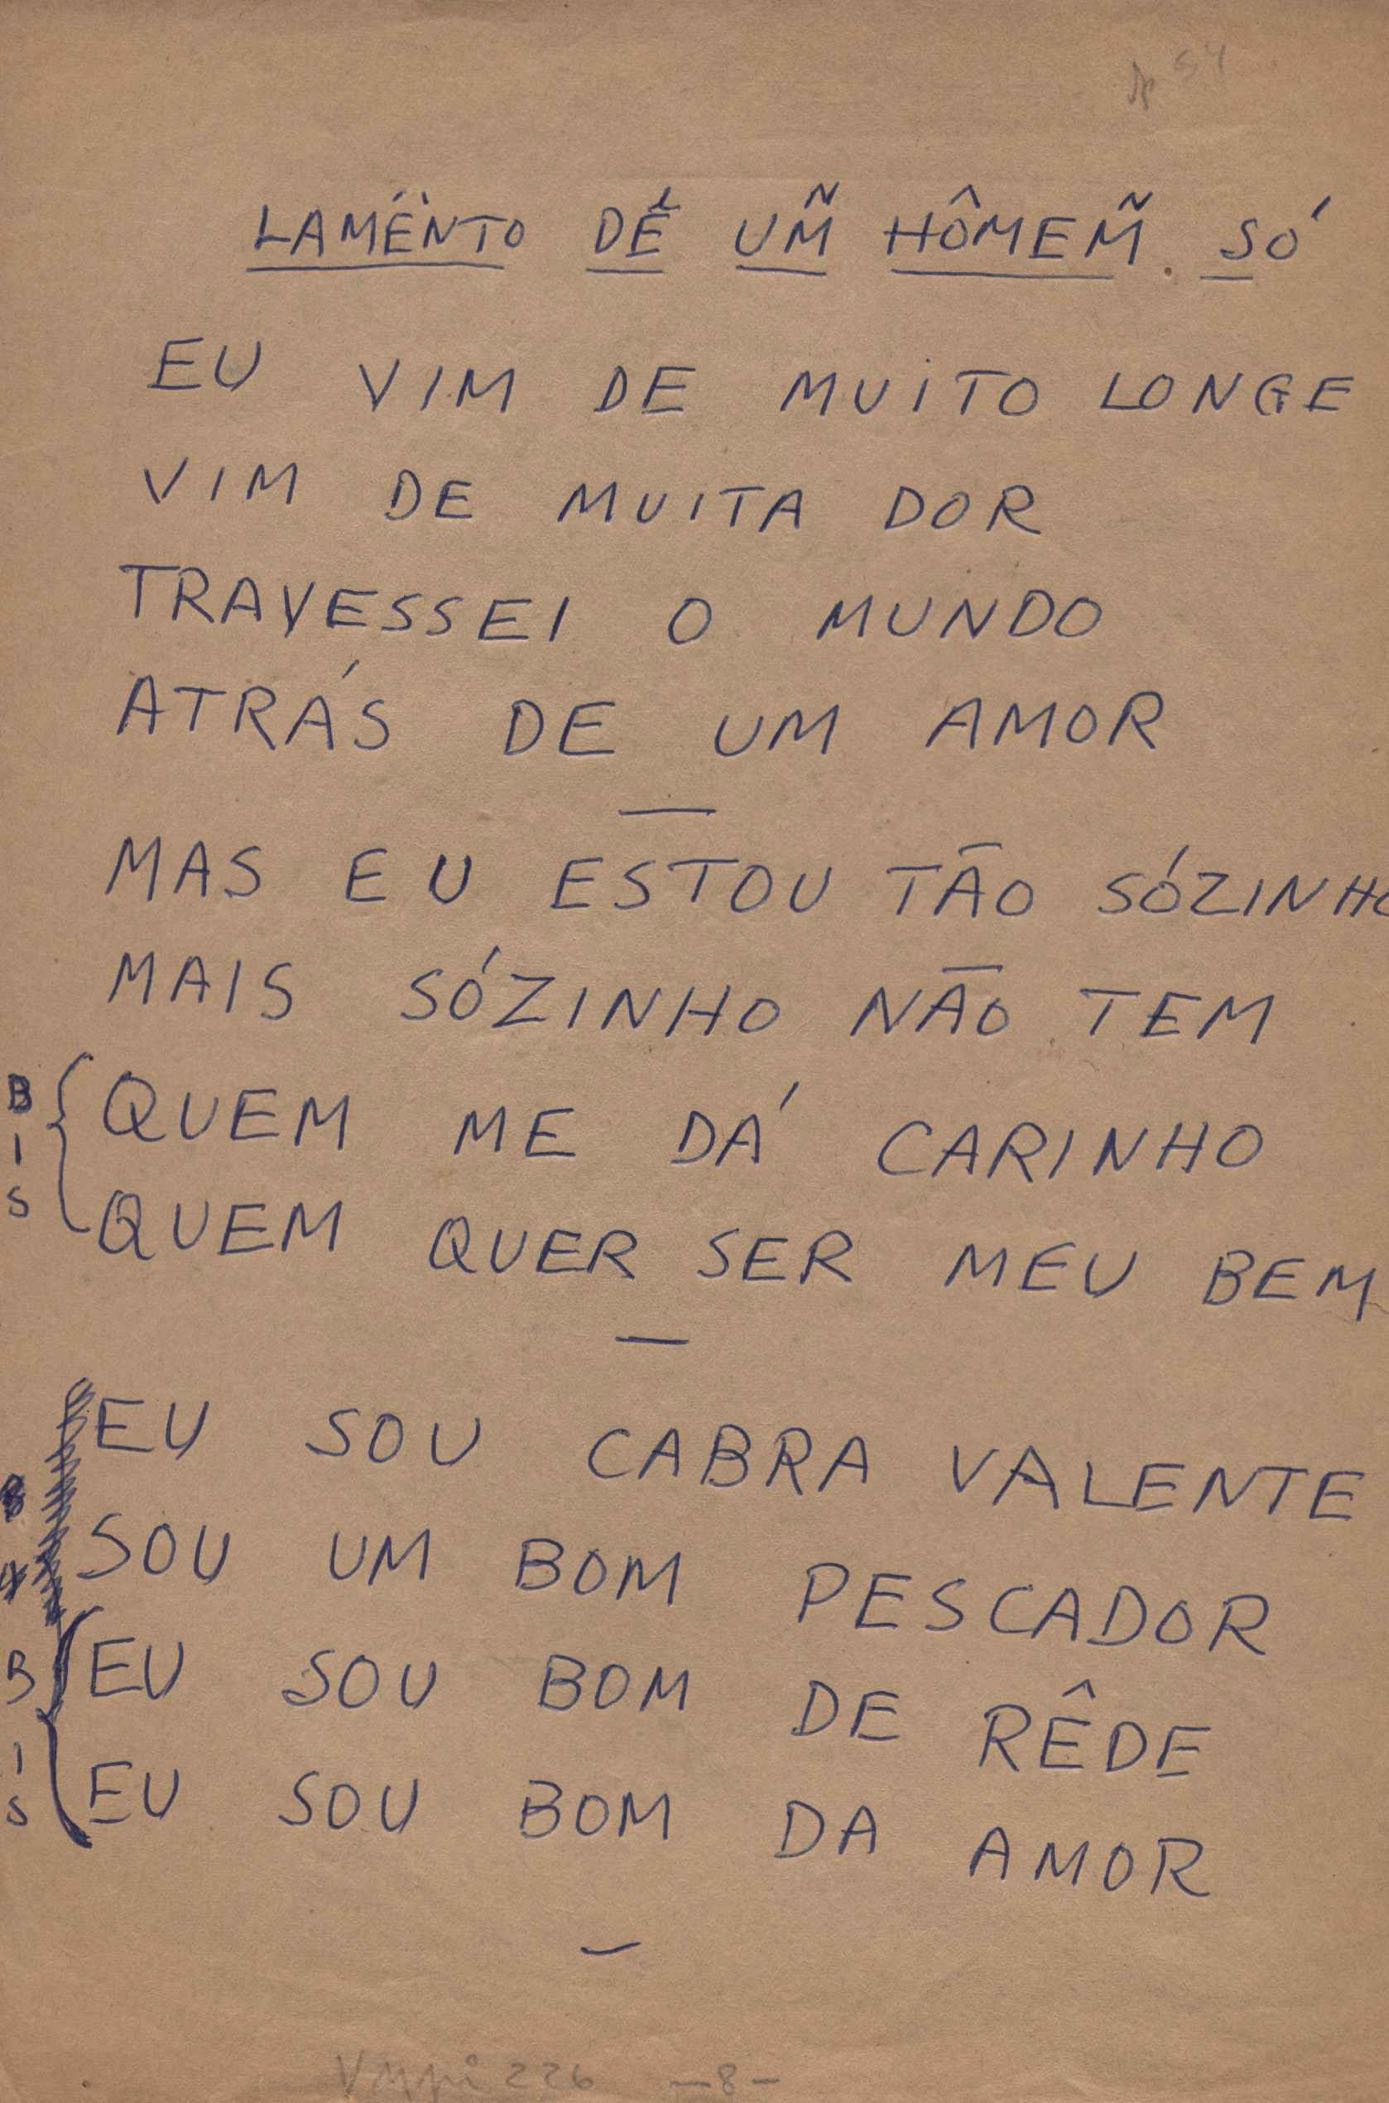 54
LAMÉNTO DÉ UM̃ HÔMEM̃. SÓ
EU VIM DE MUITO LONGE
VIM DE MUITA DOR
TRAVESSEI O MUNDO
ATRÁS DE UM AMOR
—
MAS EU ESTOU TÃO SÓZINHO
MAIS SÓZINHO NÃO TEM
BIS { QUEM ME DÁ CARINHO
QUEM QUER SER MEU BEM
—
EU SOU CABRA VALENTE
SOU UM BOM PESCADOR
BIS { EU SOU BOM DE RÊDE
EU SOU BOM DA AMOR
—
VMpi 226 —8—